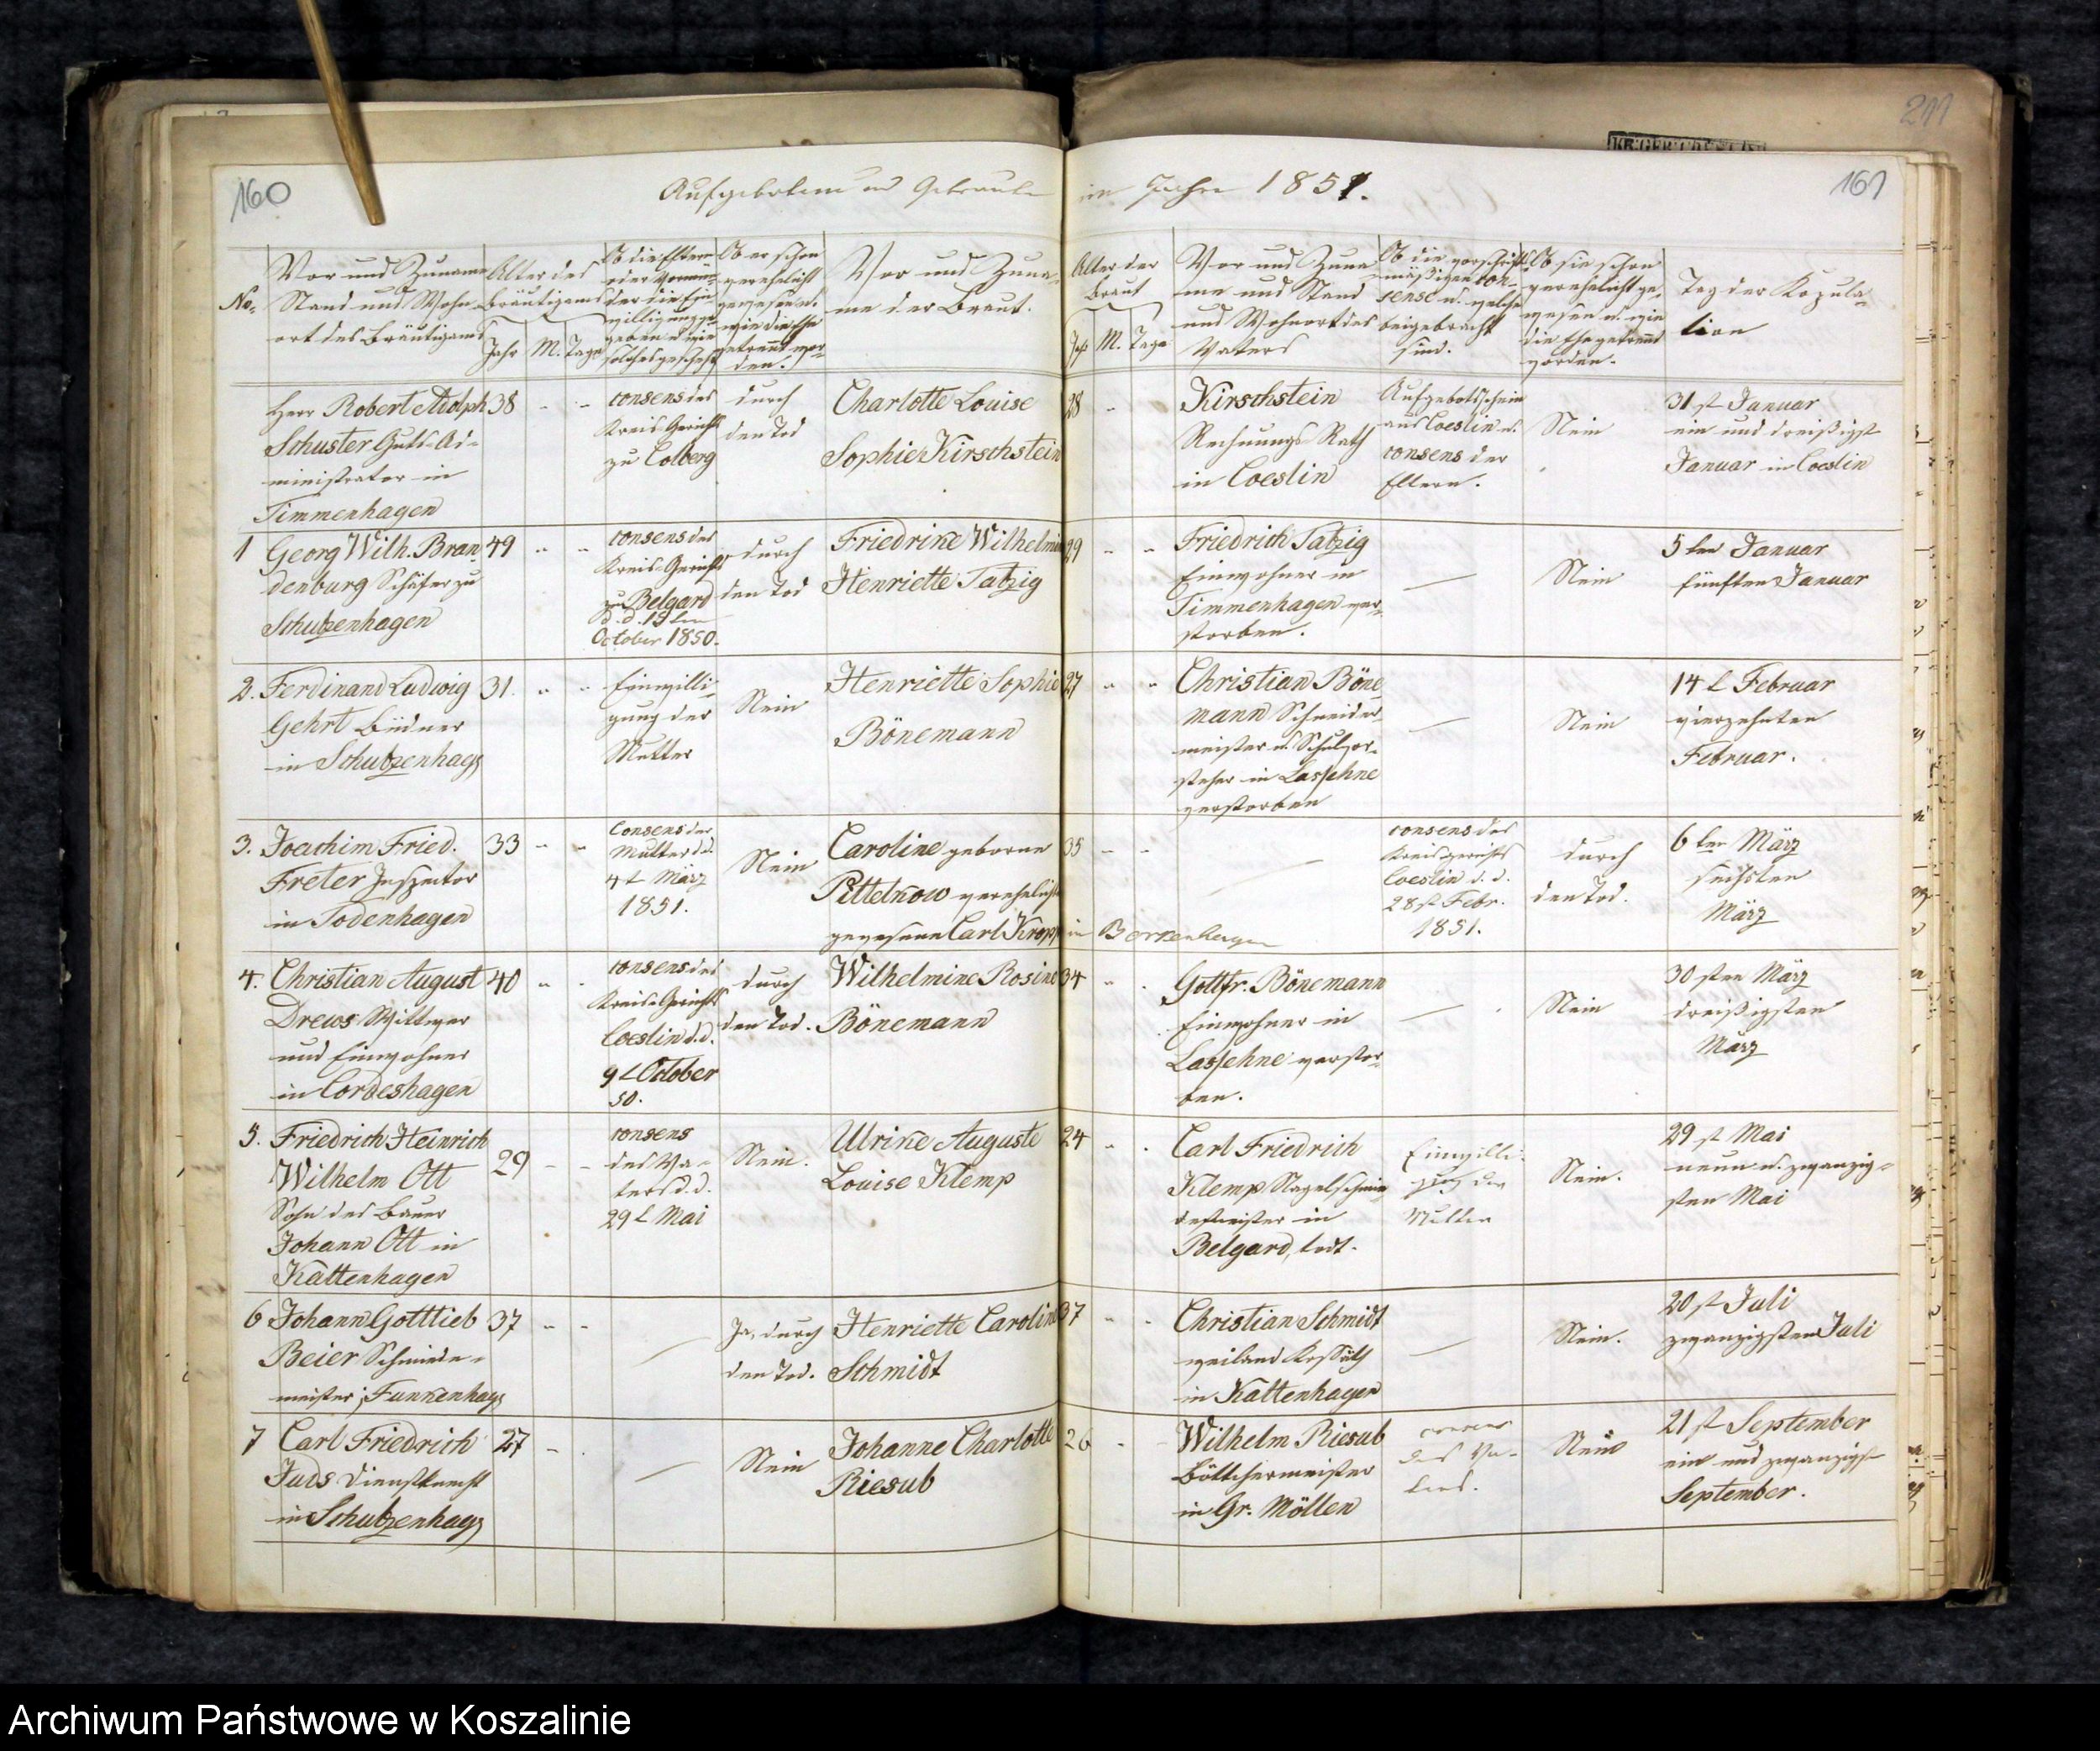 211
160
Aufgebotene und Getraute im Jahre 1851.
161
No.
Vor und Zuname
Stand und Wohn-
ort des Bräutigams
Alter des
Bräutigams
Jahr M. Tage
Ob die Eltern
oder Vormün-
der die Ein-
willigung ge-
geben u. wie
solches geschehn
Ob er schon
verehelicht
gewesen u.
wie die Ehe
getrennt wor-
den.
Vor und Zuna-
me der Braut.
Alter der
Braut
Jahr M. Tage
Vor und Zuna-
me und Stand
und Wohnort des
Vaters
Ob die vorschrifts-
mäßigen Con-
sense u. welche
beigebracht
sind.
Ob sie schon
verehelicht ge-
wesen u. wie
die Ehe getrennt
worden.
Tag der Kopula-
tion
Herr Robert Adolph
Schuster Guts-Ad-
ministrator in
Timmenhagen
38 - -
consens des
Kreis-Gerichts
zu Colberg
durch
den Tod
Charlotte Louise
Sophie Kirschstein
28 -
Kirschstein
Rechnungs-Rath
in Coeslin
Aufgebotsschein
aus Coeslin u.
consens der
Eltern.
Nein
31st Januar
ein und dreißigst
Januar in Coeslin
1 Georg Wilh. Bran-
denburg Schäfer zu
Schutzenhagen
49 - -
consens des
Kreis-Gerichts
zu Belgard
d. d. 19ten
October 1850.
durch
den Tod
Friedrike Wilhelmine
Henriette Tatzig
29 - -
Friedrich Tatzig
Einwohner in
Timmenhagen ver-
storben.
—
Nein
5ten Januar
fünften Januar
2. Ferdinand Ludwig
Gehrt Büdner
in Schutzenhag
31. - -
Einwilli-
gung der
Mutter
Nein
Henriette Sophie
Bönemann
27 - -
Christian Böne-
mann Schneider-
meister u. Schulvor-
steher in Lassehne
verstorben
—
Nein
14t Februar
vierzehnten
Februar.
3. Joachim Fried.
Freter Inspector
in Todenhagen
33 - -
Consens der
Mutter d.d.
4t März
1851.
Nein
Caroline geborne
Pittelkow verehelicht
gewesene Carl Kropp in Borkenhagen
35 - -
—
consens des
Kreisgerichts
Coeslin d. d.
28st Febr.
1851.
durch
den Tod.
6ten März
sechsten
März
4. Christian August
Drews Wittwer
und Einwohner
in Cordeshagen
40 - -
consens des
Kreis-Gerichts
Coeslin d. d.
9t October
50.
durch
den Tod.
Wilhelmine Rosine
Bönemann
34 - -
Gottfr. Bönemann
Einwohner in
Lassehne verstor-
ben.
—
Nein
30sten März
dreißigsten
März
5. Friedrich Heinrich
Wilhelm Ott
Sohn des Bauer
Johann Ott in
Kattenhagen
29 - -
consens
des Va-
ters d. d.
29t Mai
Nein.
Ulrike Auguste
Louise Klemp
24 - -
Carl Friedrich
Klemp Nagelschmie-
demeister in
Belgard, todt.
Einwilli-
gung der
Mutter
Nein.
29st Mai
neun u. zwanzig-
sten Mai
6 Johann Gottlieb
Beier Schmiede-
meister, Funkenhag
37 - -
—
Ja, durch
den Tod.
Henriette Caroline
Schmidt
37 - -
Christian Schmidt
weiland Kossäth
in Kattenhagen
—
Nein.
20st Juli
zwanzigsten Juli
7 Carl Friedrich
Juds Dienstknecht
in Schutzenhag
27 -
—
Nein
Johanne Charlotte
Riesub
26 -
Wilhelm Riesub
Böttchermeister
in Gr. Möllen
consens
des Va-
ters.
Nein
21st September
ein und zwanzigst
September.
Archiwum Państwowe w Koszalinie